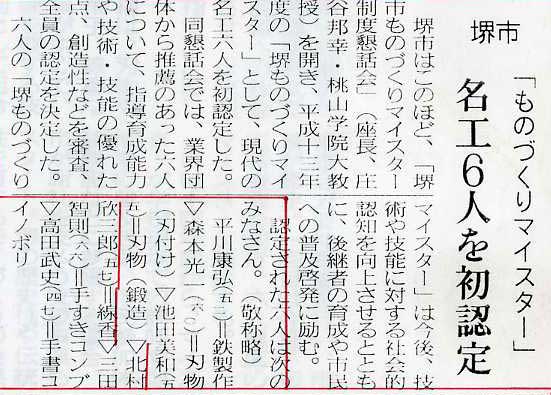 堺市
「ものづくりマイスター」
名工6人を初認定
堺市はこのほど、「堺
市ものづくりマイスター
制度懇話会」（座長、庄
谷邦幸・桃山学院大教
授）を開き、平成十三年
度の「堺ものづくりマイ
スター」として、現代の
名工六人を初認定した。
同懇話会では、業界団
体から推薦のあった六人
について、指導育成能力
や技術・技能の優れた
点、創造性などを審査、
全員の認定を決定した。
六人の「堺ものづくり
マイスター」は今後、技
術や技能に対する社会的
認知を向上させるととも
に、後継者の育成や市民
への普及啓発に励む。
認定された六人は次の
みなさん。（敬称略）
平川康弘（五二）＝鉄製作
▽森本光一（六〇）＝刃物
（刃付け）▽池田美和（五
五）＝刃物（鍛造）▽北村
欣三郎（五七）＝線香▽三田
智則（六八）＝手すきコンブ
▽高田武史（四七）＝手書コ
イノボリ